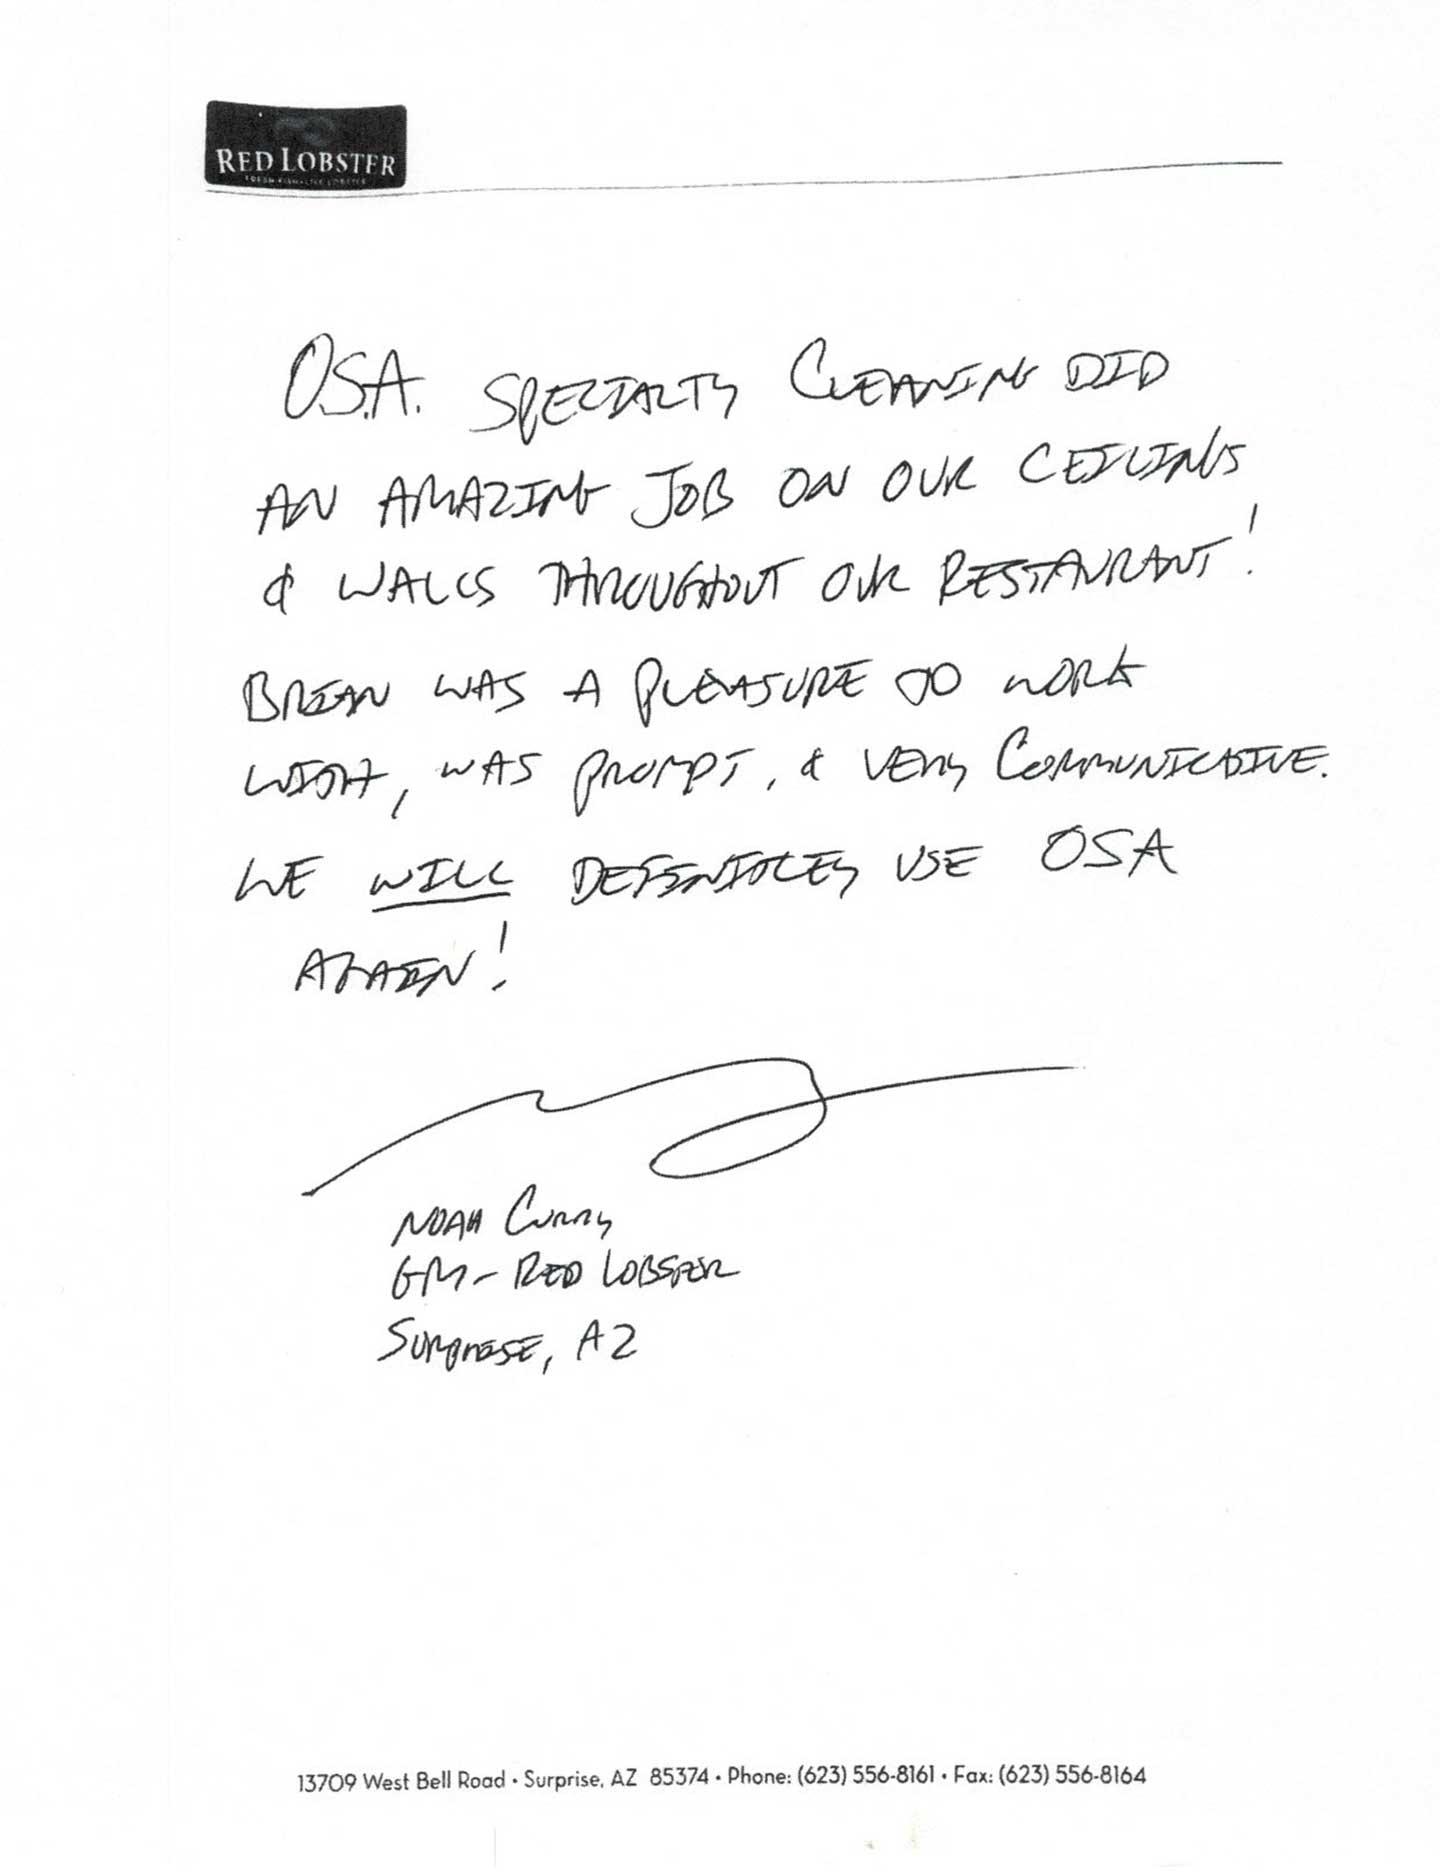 RED LOBSTER
FRESH FISH • LIVE LOBSTER
O.S.A. SPECIALTY CLEANING DID
AN AMAZING JOB ON OUR CEILINGS
& WALLS THROUGHOUT OUR RESTAURANT!
BRIAN WAS A PLEASURE TO WORK
WITH, WAS PROMPT, & VERY COMMUNICATIVE.
WE WILL DEFINITLEY USE OSA
AGAIN!
NOAH CURRY
GM- RED LOBSTER
SURPRISE, AZ
13709 West Bell Road • Surprise, AZ 85374 • Phone: (623) 556-8161 • Fax: (623) 556-8164